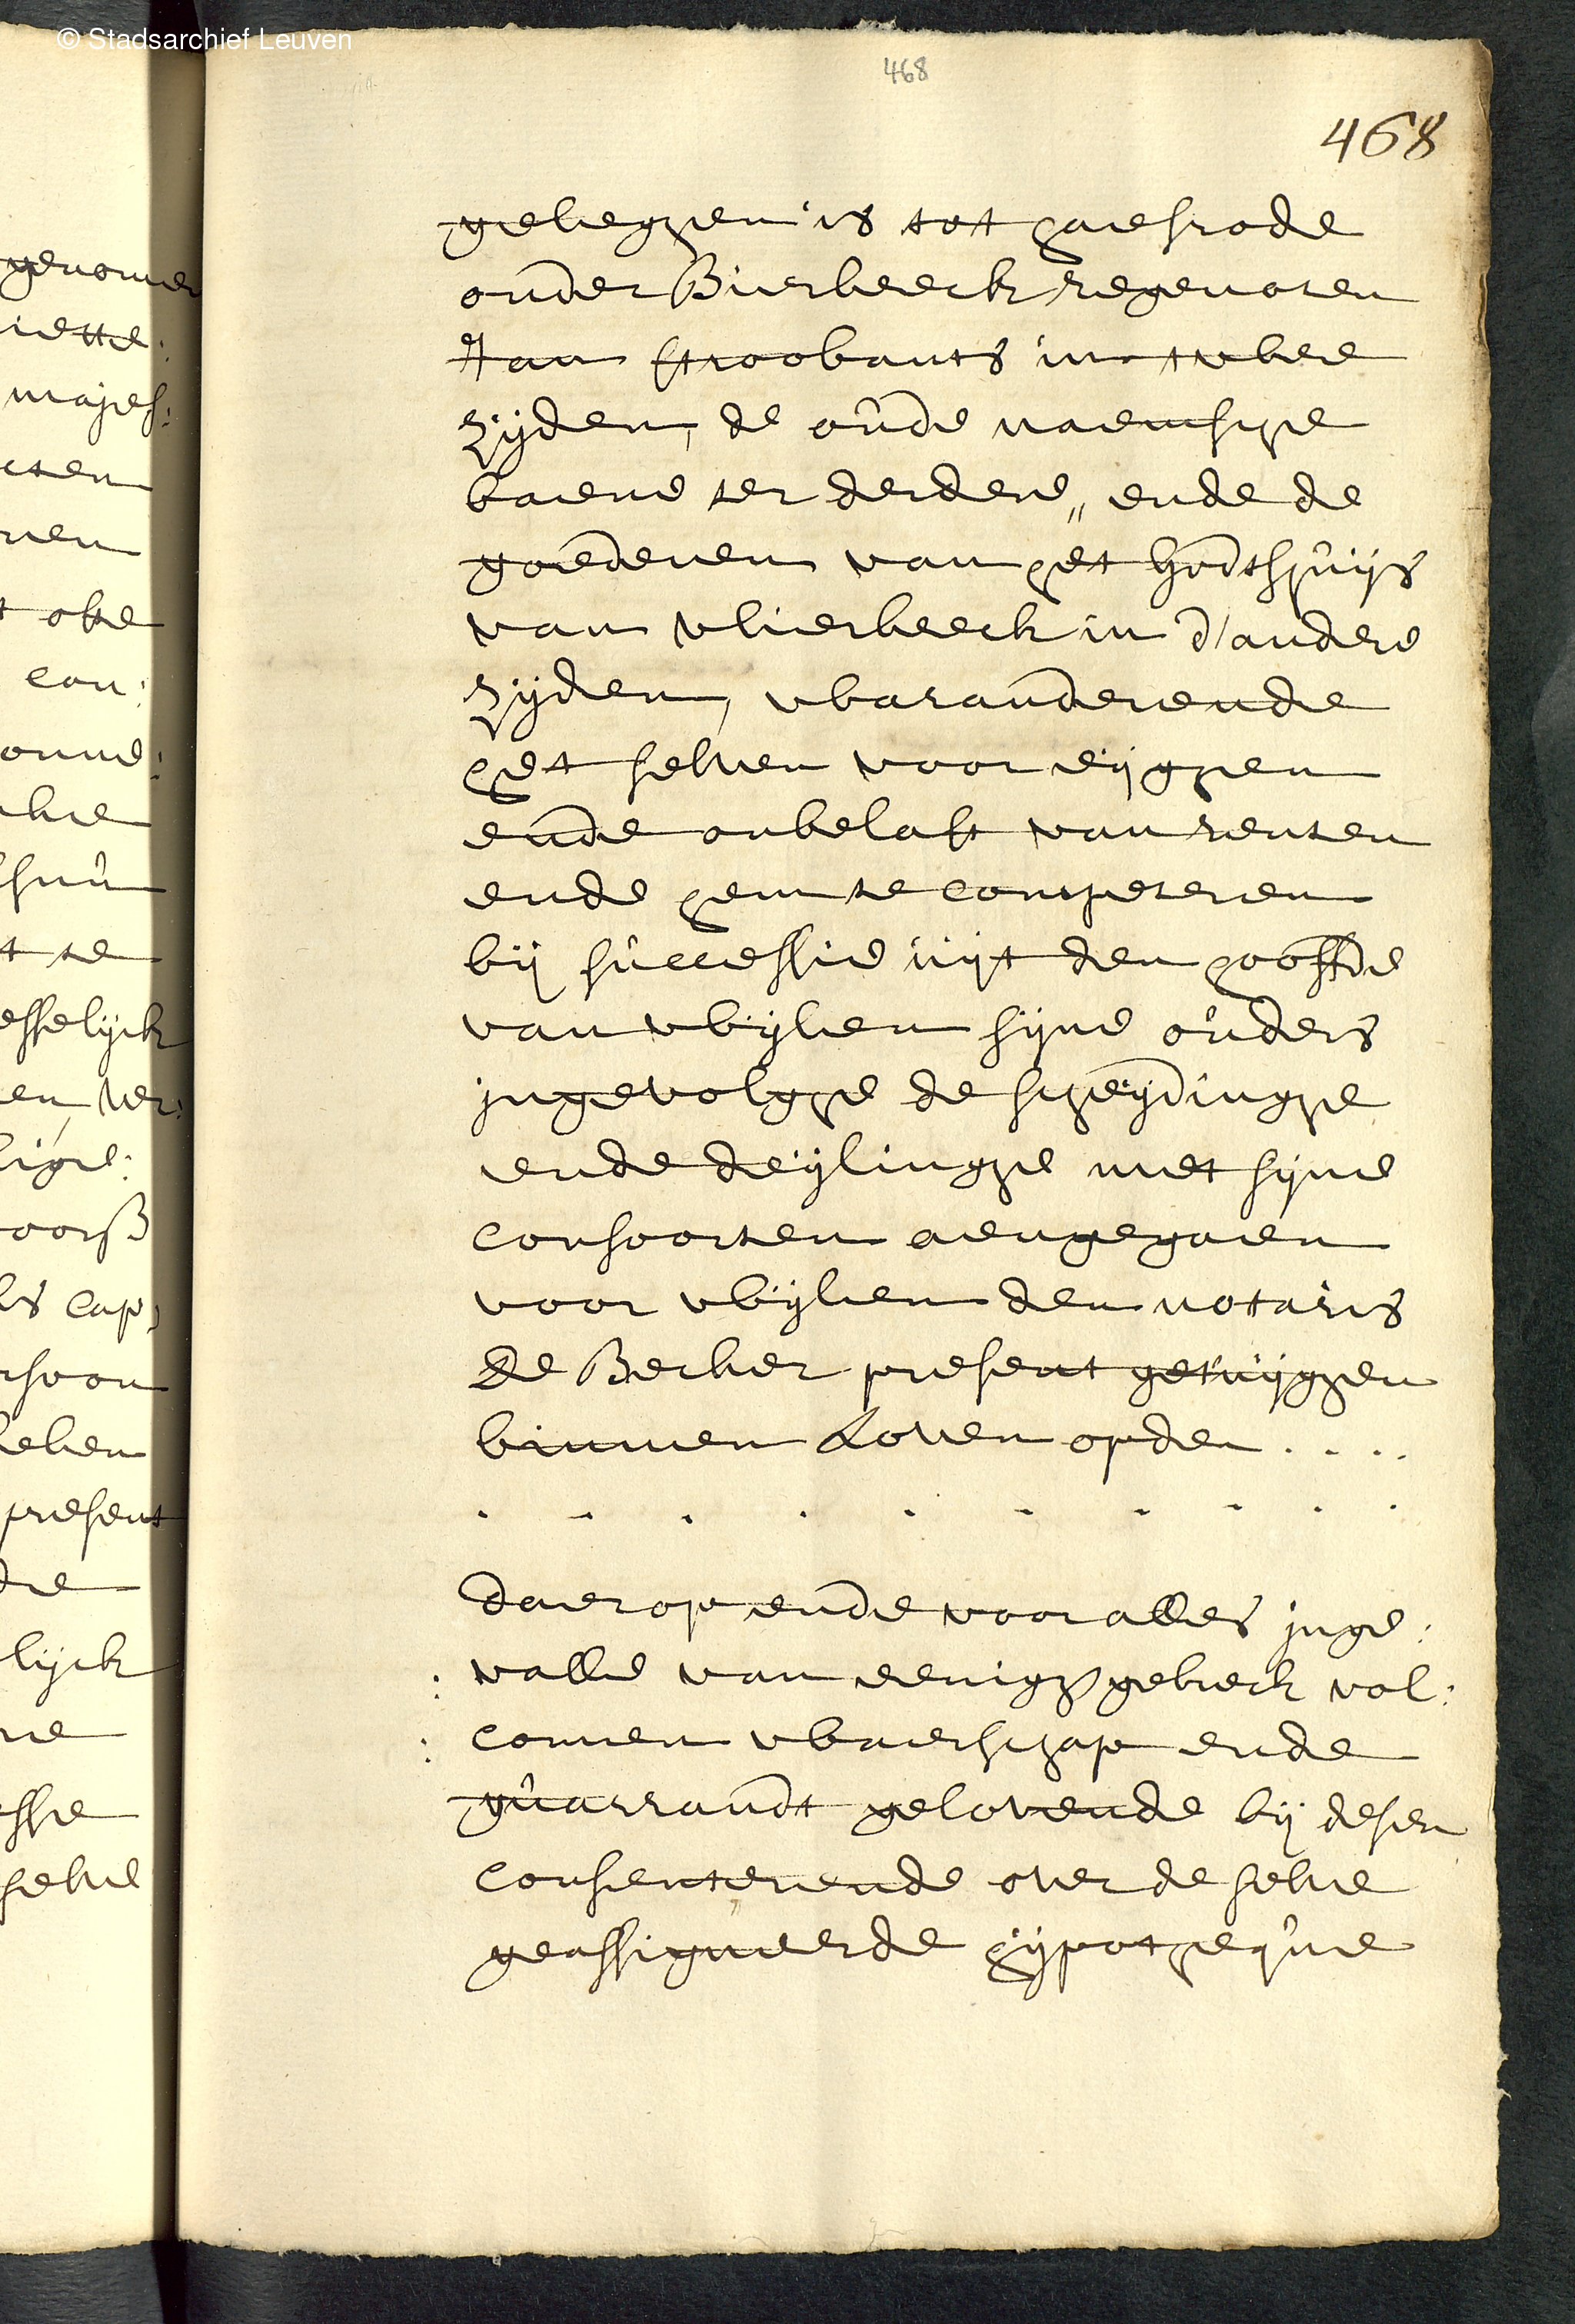 © Stadsarchief Leuven
468
468
geleghen is tot haesrode
onder Bierbeeck regenoten
Jan stroobants in twee
zijden, de oude naemsche
baene ter derdere,, ende de
goederen van het Godtshuijs
van vlierbeeck in d'andere
zijden, waranderende
het selven voor eijghen
ende onbelast van renten
ende hem te competeren
bij successie uijt den hooffde
van wijlen sijne ouders
ingevolghe de scheijdinghe
ende deijlinghe met sijne
consoorten aengegaen
voor wijlen den notaris
de Becker present getuijghen
binnen Loven op den . . . .
. . . . . . . . . .
daer op ende voor alles inge:
: valle van eenigh gebreck vol:
: comen waerschap ende
guarrandt gelovende bij desen
consenterende over de selve
geassigneerde hijpotheque
genomen
iette:
majes:
cten
nen
t oste
con:
omme:
t te
esselijck
en, ver:
ligl:
voorß
ls cap,
rsoon
leken
present
lijck
ne
ssie
selve